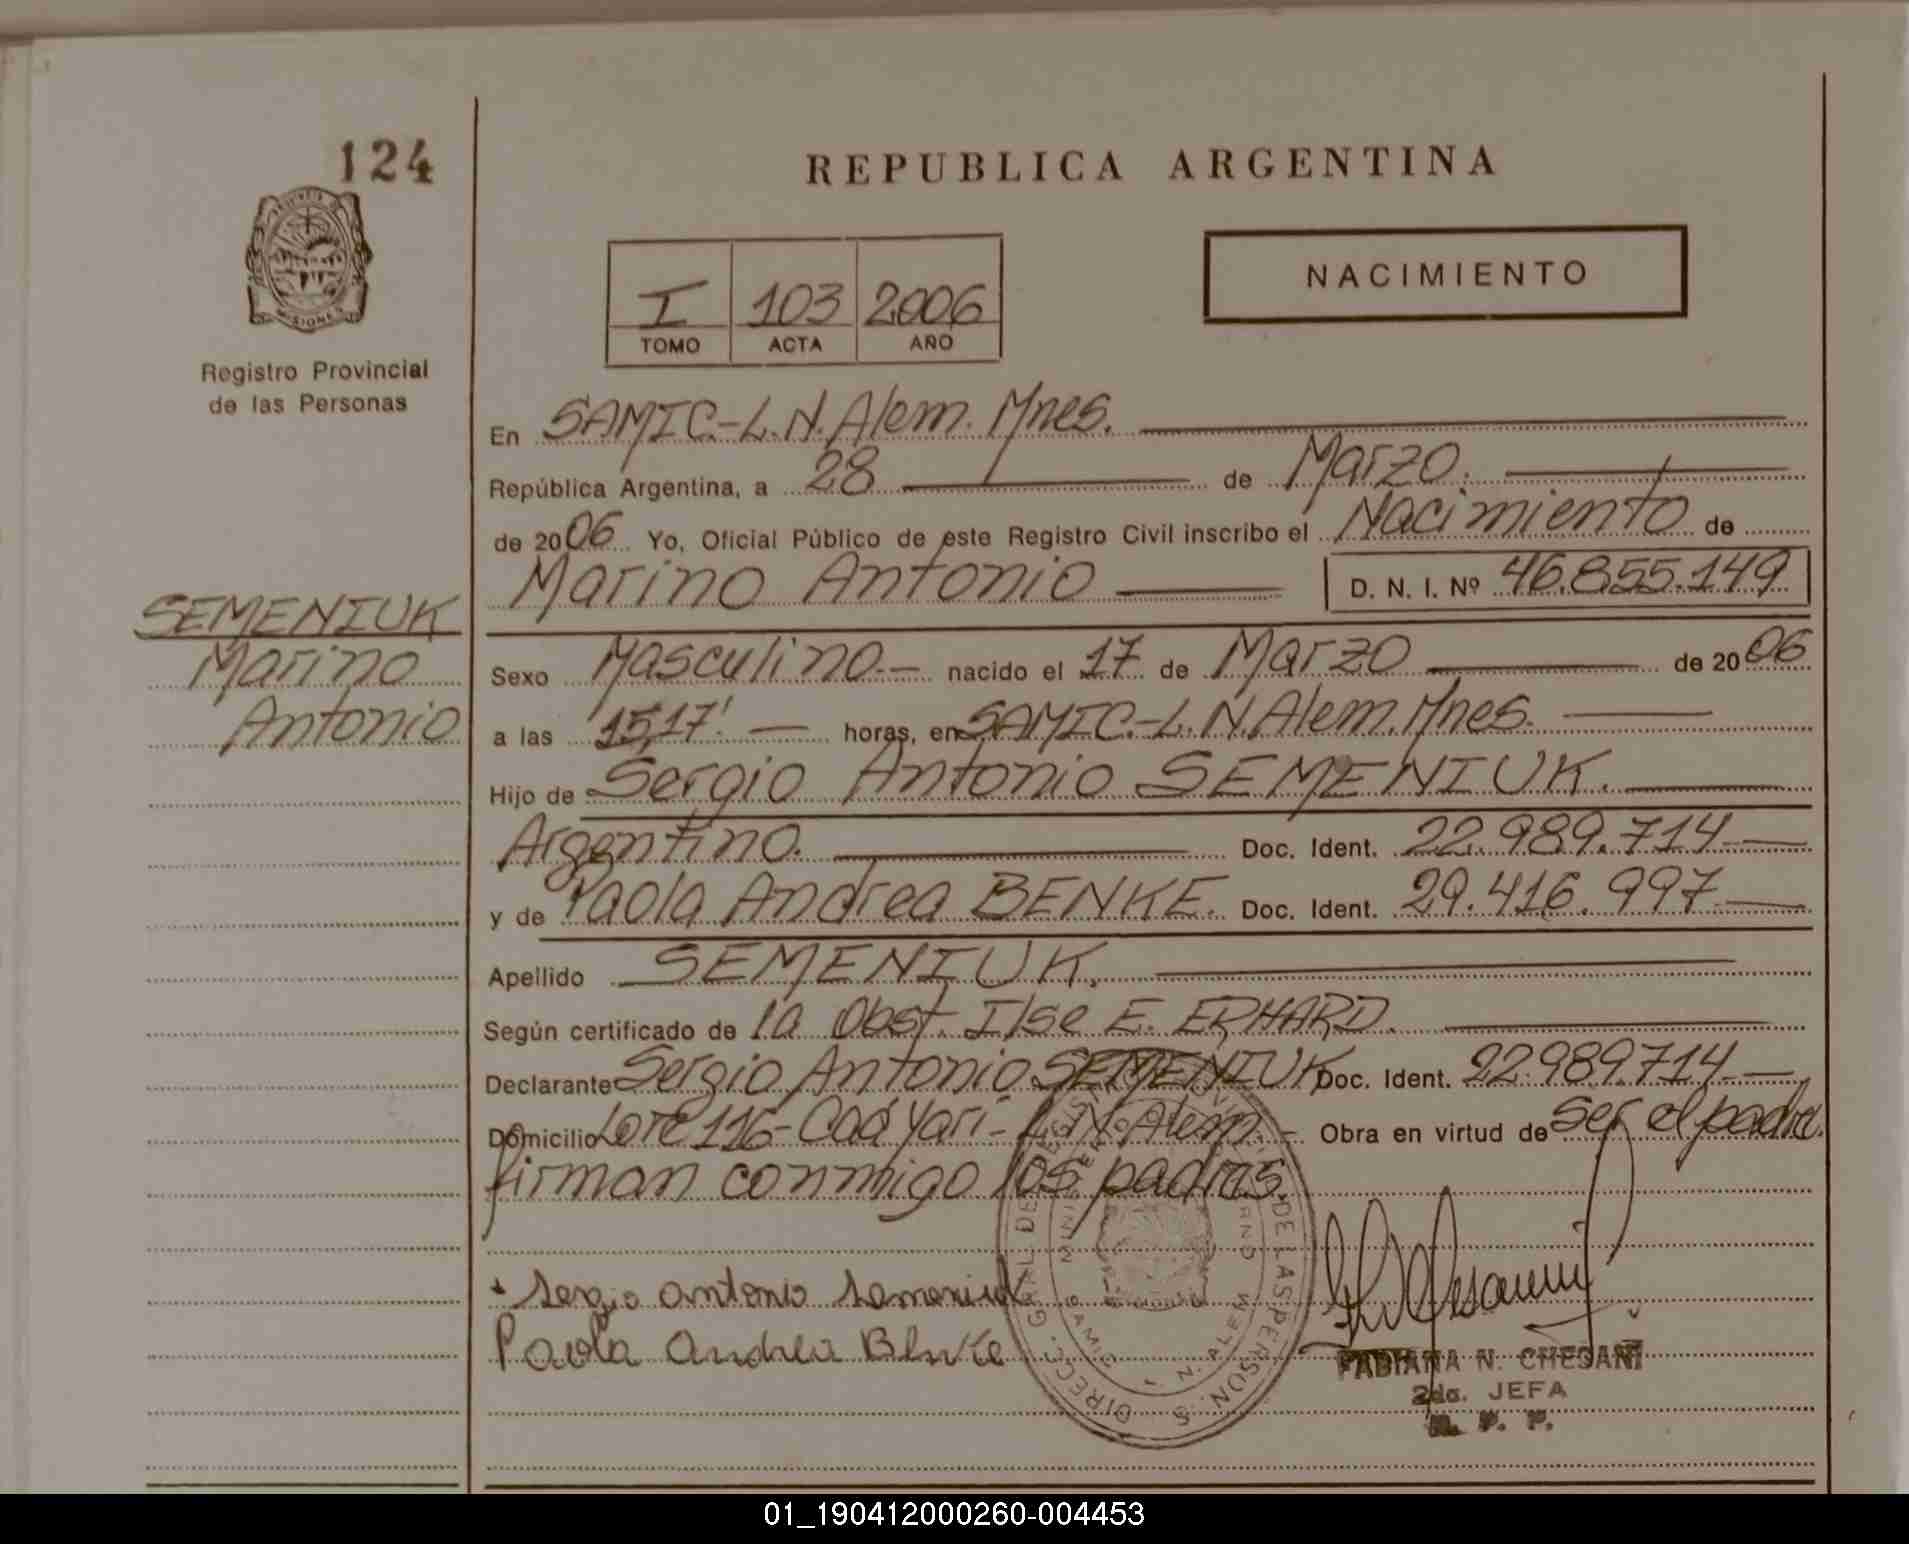 124
REPUBLICA ARGENTINA
NACIMIENTO
I 103 2006
TOMO ACTA AÑO
MISIONES
Registro Provincial
de las Personas
En SAMIC.-L.N.Alem. Mnes.
República Argentina, a 28 de Marzo.
de 2006 Yo, Oficial Público de este Registro Civil inscribo el Nacimiento de
Marino Antonio D. N. I. Nº 46.855.149
SEMENIUK
Marino
Antonio
Sexo Masculino.- nacido el 17 de Marzo de 2006
a las 15,17'. horas, en SAMIC.-L.N.Alem.Mnes.
Hijo de Sergio Antonio SEMENIUK.
Argentino. Doc. Ident. 22.989.714
y de Paola Andrea BENKE. Doc. Ident. 29.416.997
Apellido SEMENIUK.
Según certificado de la Obst. Ilse E. ERHARD.
Declarante Sergio Antonio SEMENIUK Doc. Ident. 22.989.714
Domicilio Lote 116- Caá Yarí- L.N.Alem.- Obra en virtud de ser el padre.
firman conmigo los padres.
Sergio Antonio Semeniuk
Paola Andrea Benke
FABIANA N. CHESANI
2da. JEFA
R. P. P.
01_190412000260-004453